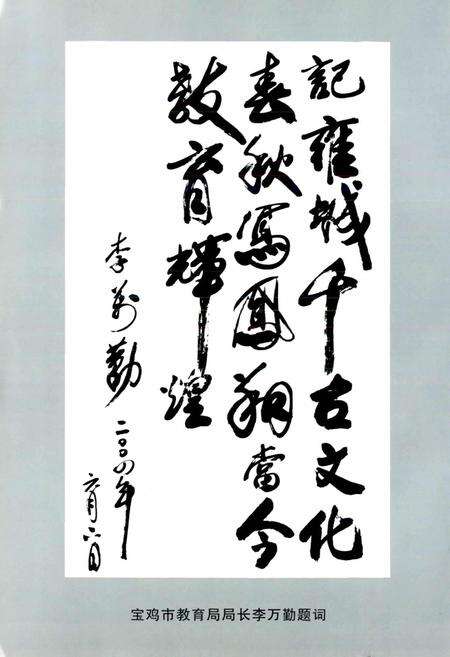 記雍城千古文化
春秋寫鳳翔當今
教育輝煌
李萬勤
二〇〇四年
六月六日
宝鸡市教育局局长李万勤题词